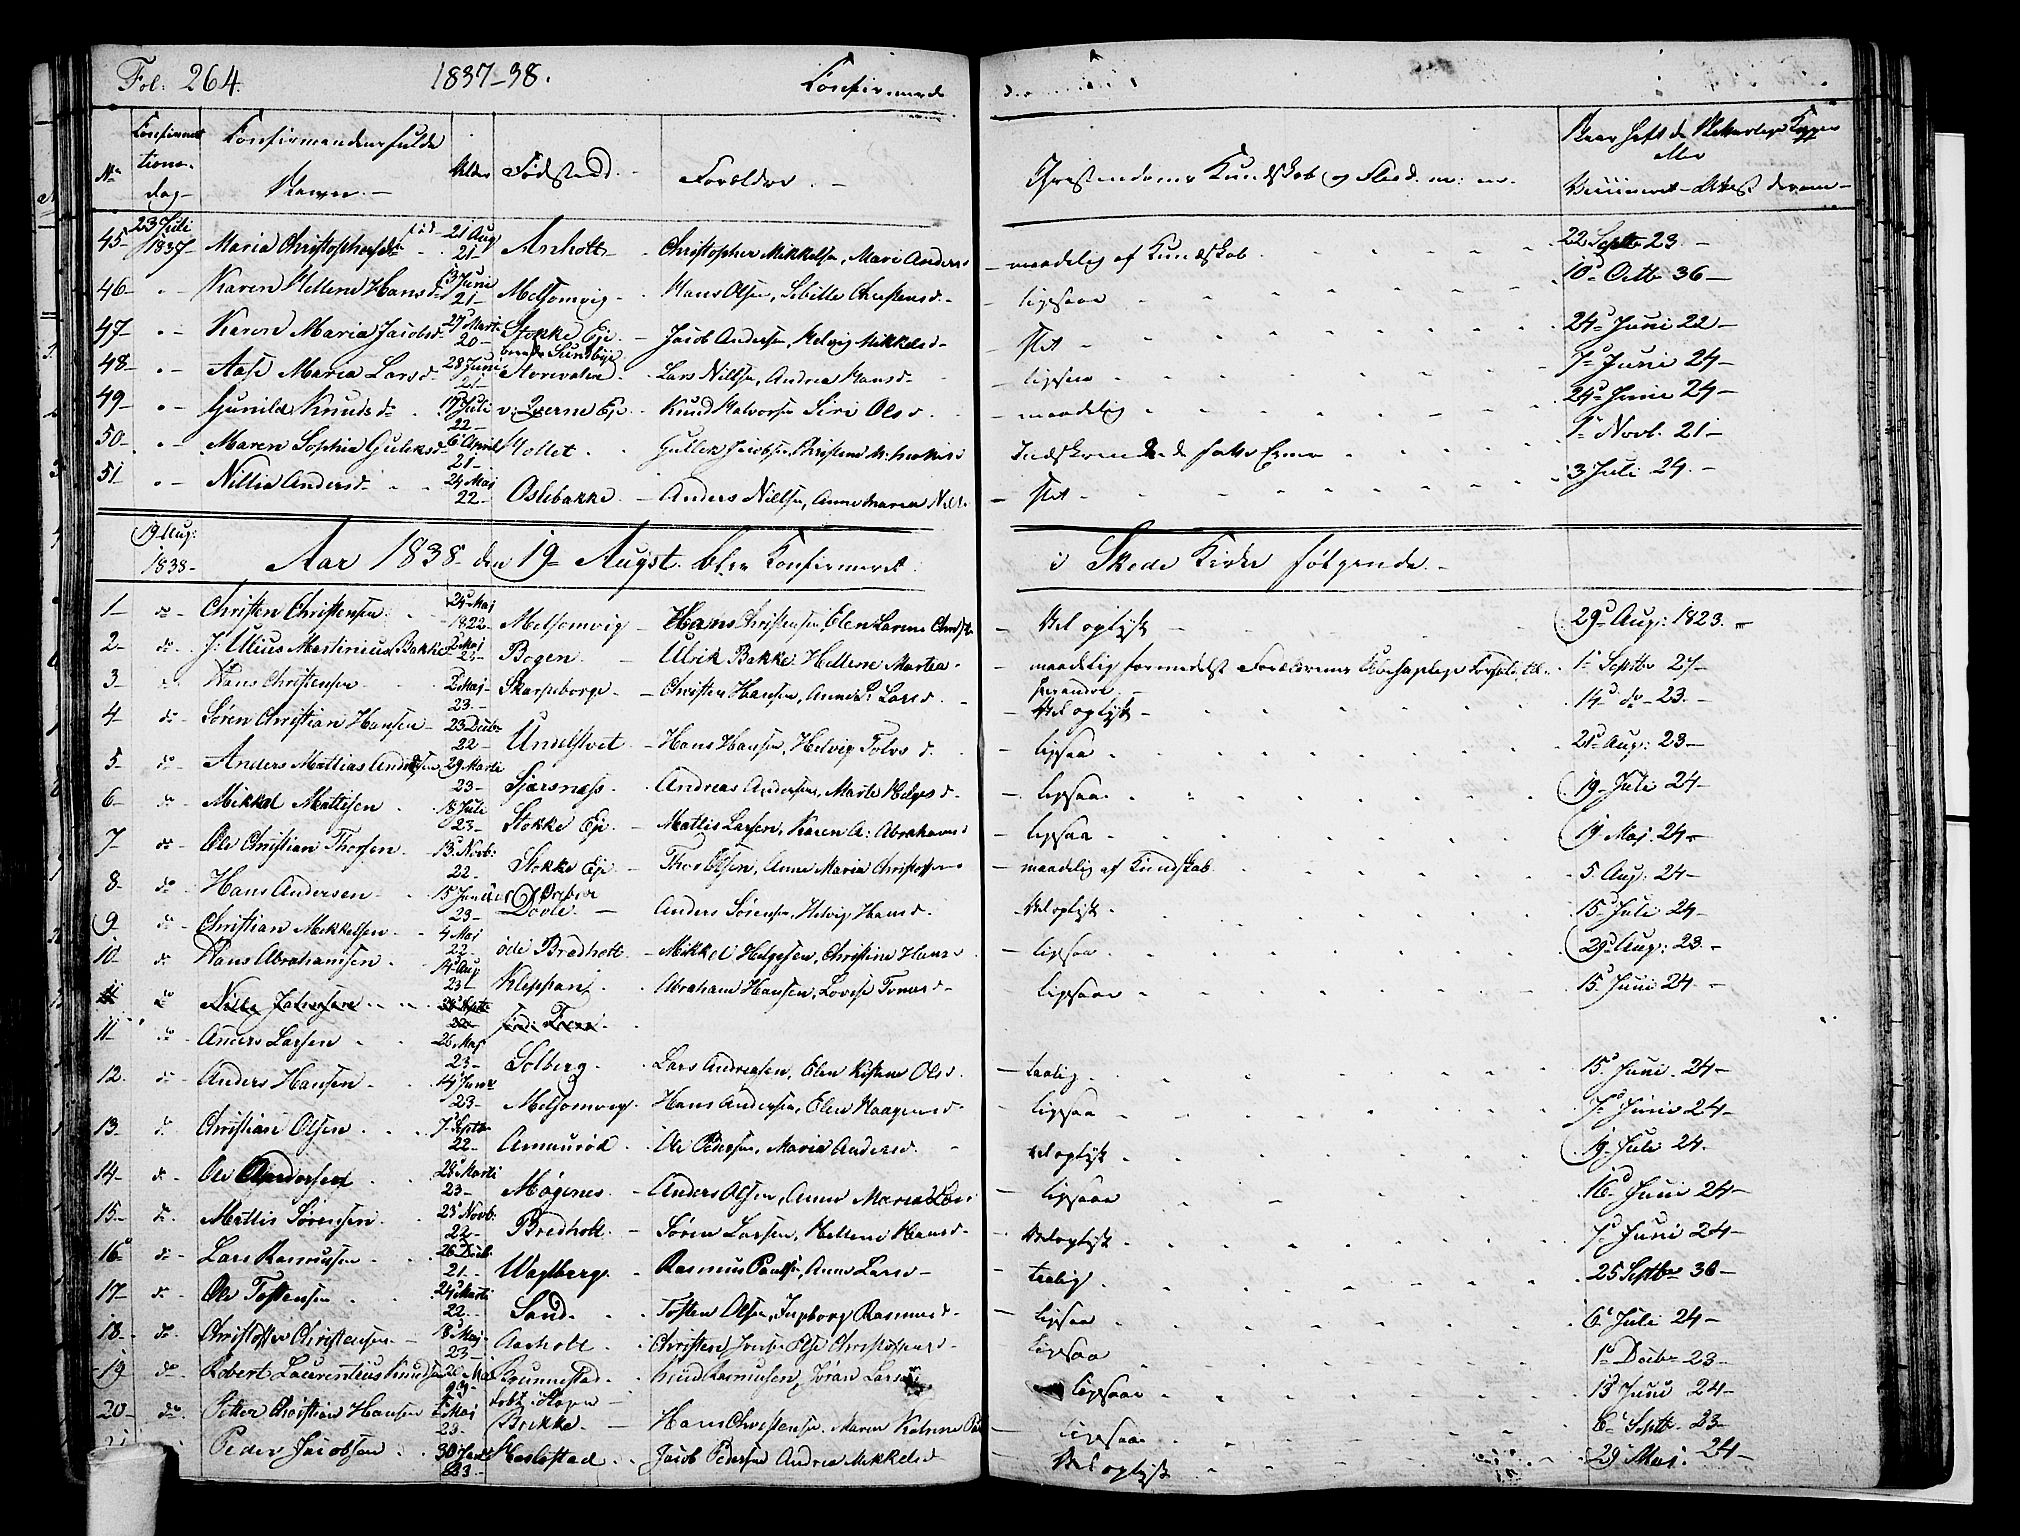 Fol. 264. 1837-38. Confirmerede
No Confirmations Dag Confirmandens fulde Navn. Alder Fødested. Forældre. Christendoms Kundskab og Flid m: m. Naar havt de Naturlige Kopper eller Vaccineret - Attest derom
45 23 Juli 1837 Maria Christophersd. 21 Aug 21 Anholt Christopher Mikkelsen, Mari Andersd maadelig af Kundskab 22 Septb 23
46 Karen Hellene Hansd 13 Juni 21 Melsomvig Hans Olsen, Sibille Christensd. ligesaa 10 Octb 36
47 Karen Maria Jacobsd 27 Mart. 20 Stokke Eje Jacob Andersen, Helvig Mikkelsd slet 24 Juni 22
48 Aase Maria Larsd 28 Juni 21 Lars Nillsen, Andrea Hansd ligesaa 7 Juni 24
49 Gunild Knudsd 17 Juli 22 Eje Knud Halvorsen Siri Olsd maadelig 24 Juni 24
50 Maren Sophia Gulleksd 6 April 21 Gullek Jacobsen, Christine 1 Novb. 21
51 Nillia Andersd 24 Maj 22 Oslebakke Anders Nillsen, Anne Maria Nilsd slet 3 Juli 24
19 Aug: 1838 Aar 1838 den 19 Augst. blev Confirmeret i Skede Kirke følgende
1 do Christen Christensen 24 Maj 1822 Melsomvig Hans Christensen, Elen Larine Vel oplyst 29 Aug: 1823
2 do J: Ulius Martinius Bakke 2 Maj Bogen Ulrik Bakke, Hellene Martea maadelig formedelst Forældrenes 1 Septb 27
3 do Hans Christensen 2 Maj 23 Skarpeborge Christen Hansen, Anne Larsd Vel oplyst 14 do 23
4 do Søren Christian Hansen 23 Decbr 22 Undelstvet Hans Hansen, Helvig Tolvsd ligesaa 21 Aug: 23
5 do Anders Mathias Andersen 29 Marti 23 Sjærsnæss Andreas Andersen, Marte Helgesd ligesaa 19 Juli 24
6 do Mikkel Mattisen 18 Juli 23 Stokke Eje Mattis Larsen, Karen A: Abrahamsd ligesaa 19 Maj 24
7 do Ole Christian Thorsen 13 Novb: 22 Stokke Eje Thor Olsen, Anne Maria Christoffersd maadelig af Kundskab 5 Aug: 24
8 do Hans Andersen 15 Januar 23 Dovle Anders Sørensen, Helvig Hansd. Vel oplyst 15 Juli 24
9 do Christian Mikkelsen 4 Maj 22 øde Bredholt Mikkel Helgesen, Christine Hansd ligesaa 29 Aug: 23
10 do Hans Abrahamsen 14 Aug 23 Kleppan Abraham Hansen, Lovise Tronsd ligesaa 15 Juni 24
11 do Anders Larsen 26 Maj 23 Solberg Lars Andreasen, Elen Kistine Olsd. taalig 15 Juni 24
12 do Anders Hansen 14 Janr 23 Melsomvig Hans Andersen, Elen Haagensd ligesaa 7 Juni 24
13 do Christian Olsen 7 Septb 22 Ammerød Ole Pedersen, Maria Andersd. Vel oplyst 19 Juli 24
14 do Ole Andersen 28 Marti 23 Møgenes Anders Olsen, Anne Maria ligesaa 16 Juni 24
15 do Mattis Sørensen 23 Novb: 22 Bredholt Søren Larsen, Hellene Hansd Vel oplyst 7 Juni 24
16 do Lars Rasmusen 26 Decb. 21 Wagtberg Rasmus Paulsen, Anne Larsd taalig 25 Septbr 36
17 do Ole Tostensen 24 Marti 22 Sand Tosten Olsen, Ingeborg Rasmusd ligesaa 6 Juli 24
18 do Christoffer Christensen 18 Maj 23 Aasholt Christen Jensen Else Christophersd ligesaa 1 Decbr 23
19 do Robert Laurentius Knudsen 20 Maj 23 Brunnestad Knud Rasmusen, Jøran Larsd ligesaa 13 Juni 24
20 do Petter Christian Hansen Maj 23 Brekke Hans Christensen, Maren Katrine ligesaa 6 Septb. 23
21 Peder Jacobsen 30 23 Haslestad Jacob Pedersen Andrea Mikkelsd Vel oplyst 29 Maj. 24